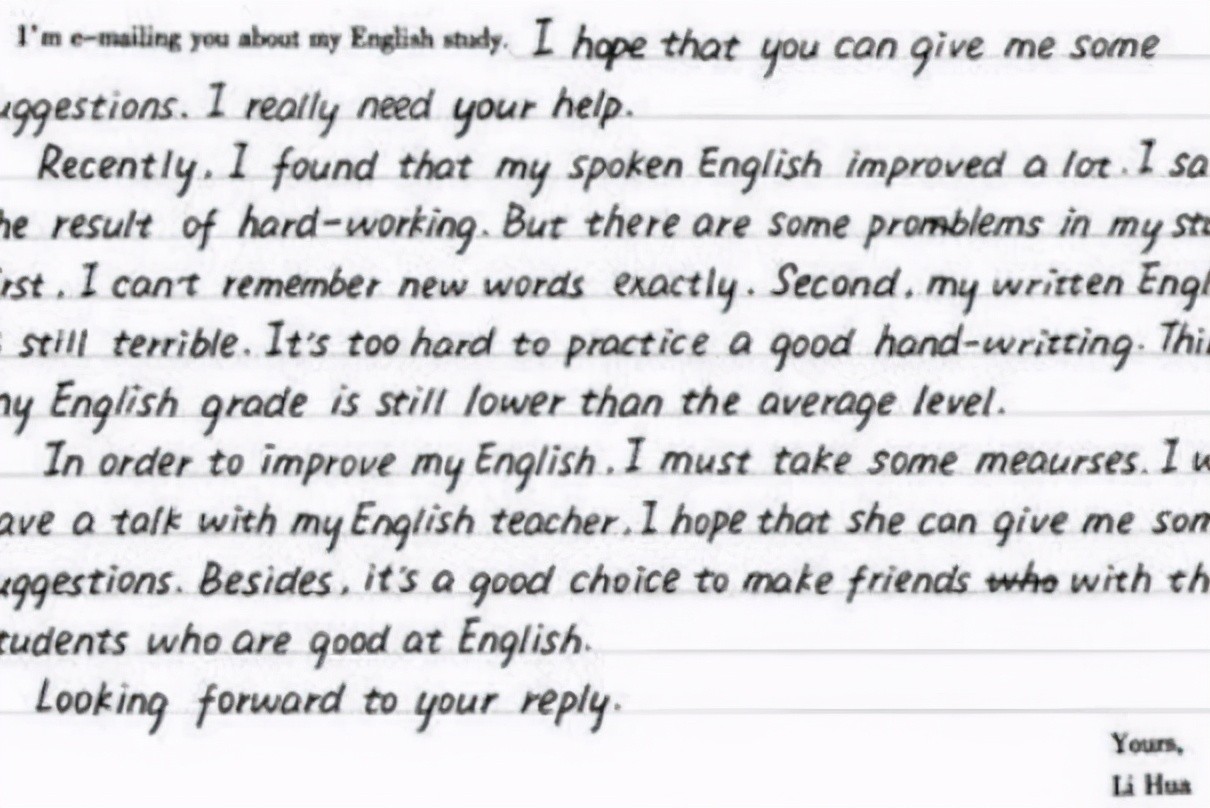 I'm e-mailing you about my English study. I hope that you can give me some
uggestions. I really need your help.
Recently, I found that my spoken English improved a lot. I sa
he result of hard-working. But there are some promblems in my stu
irst, I can't remember new words exactly. Second, my written Engl
still terrible. It's too hard to practice a good hand-writting. Thir
my English grade is still lower than the average level.
In order to improve my English, I must take some meaurses. I w
ave a talk with my English teacher, I hope that she can give me som
uggestions. Besides, it's a good choice to make friends who with th
tudents who are good at English.
Looking forward to your reply.
Yours,
Li Hua